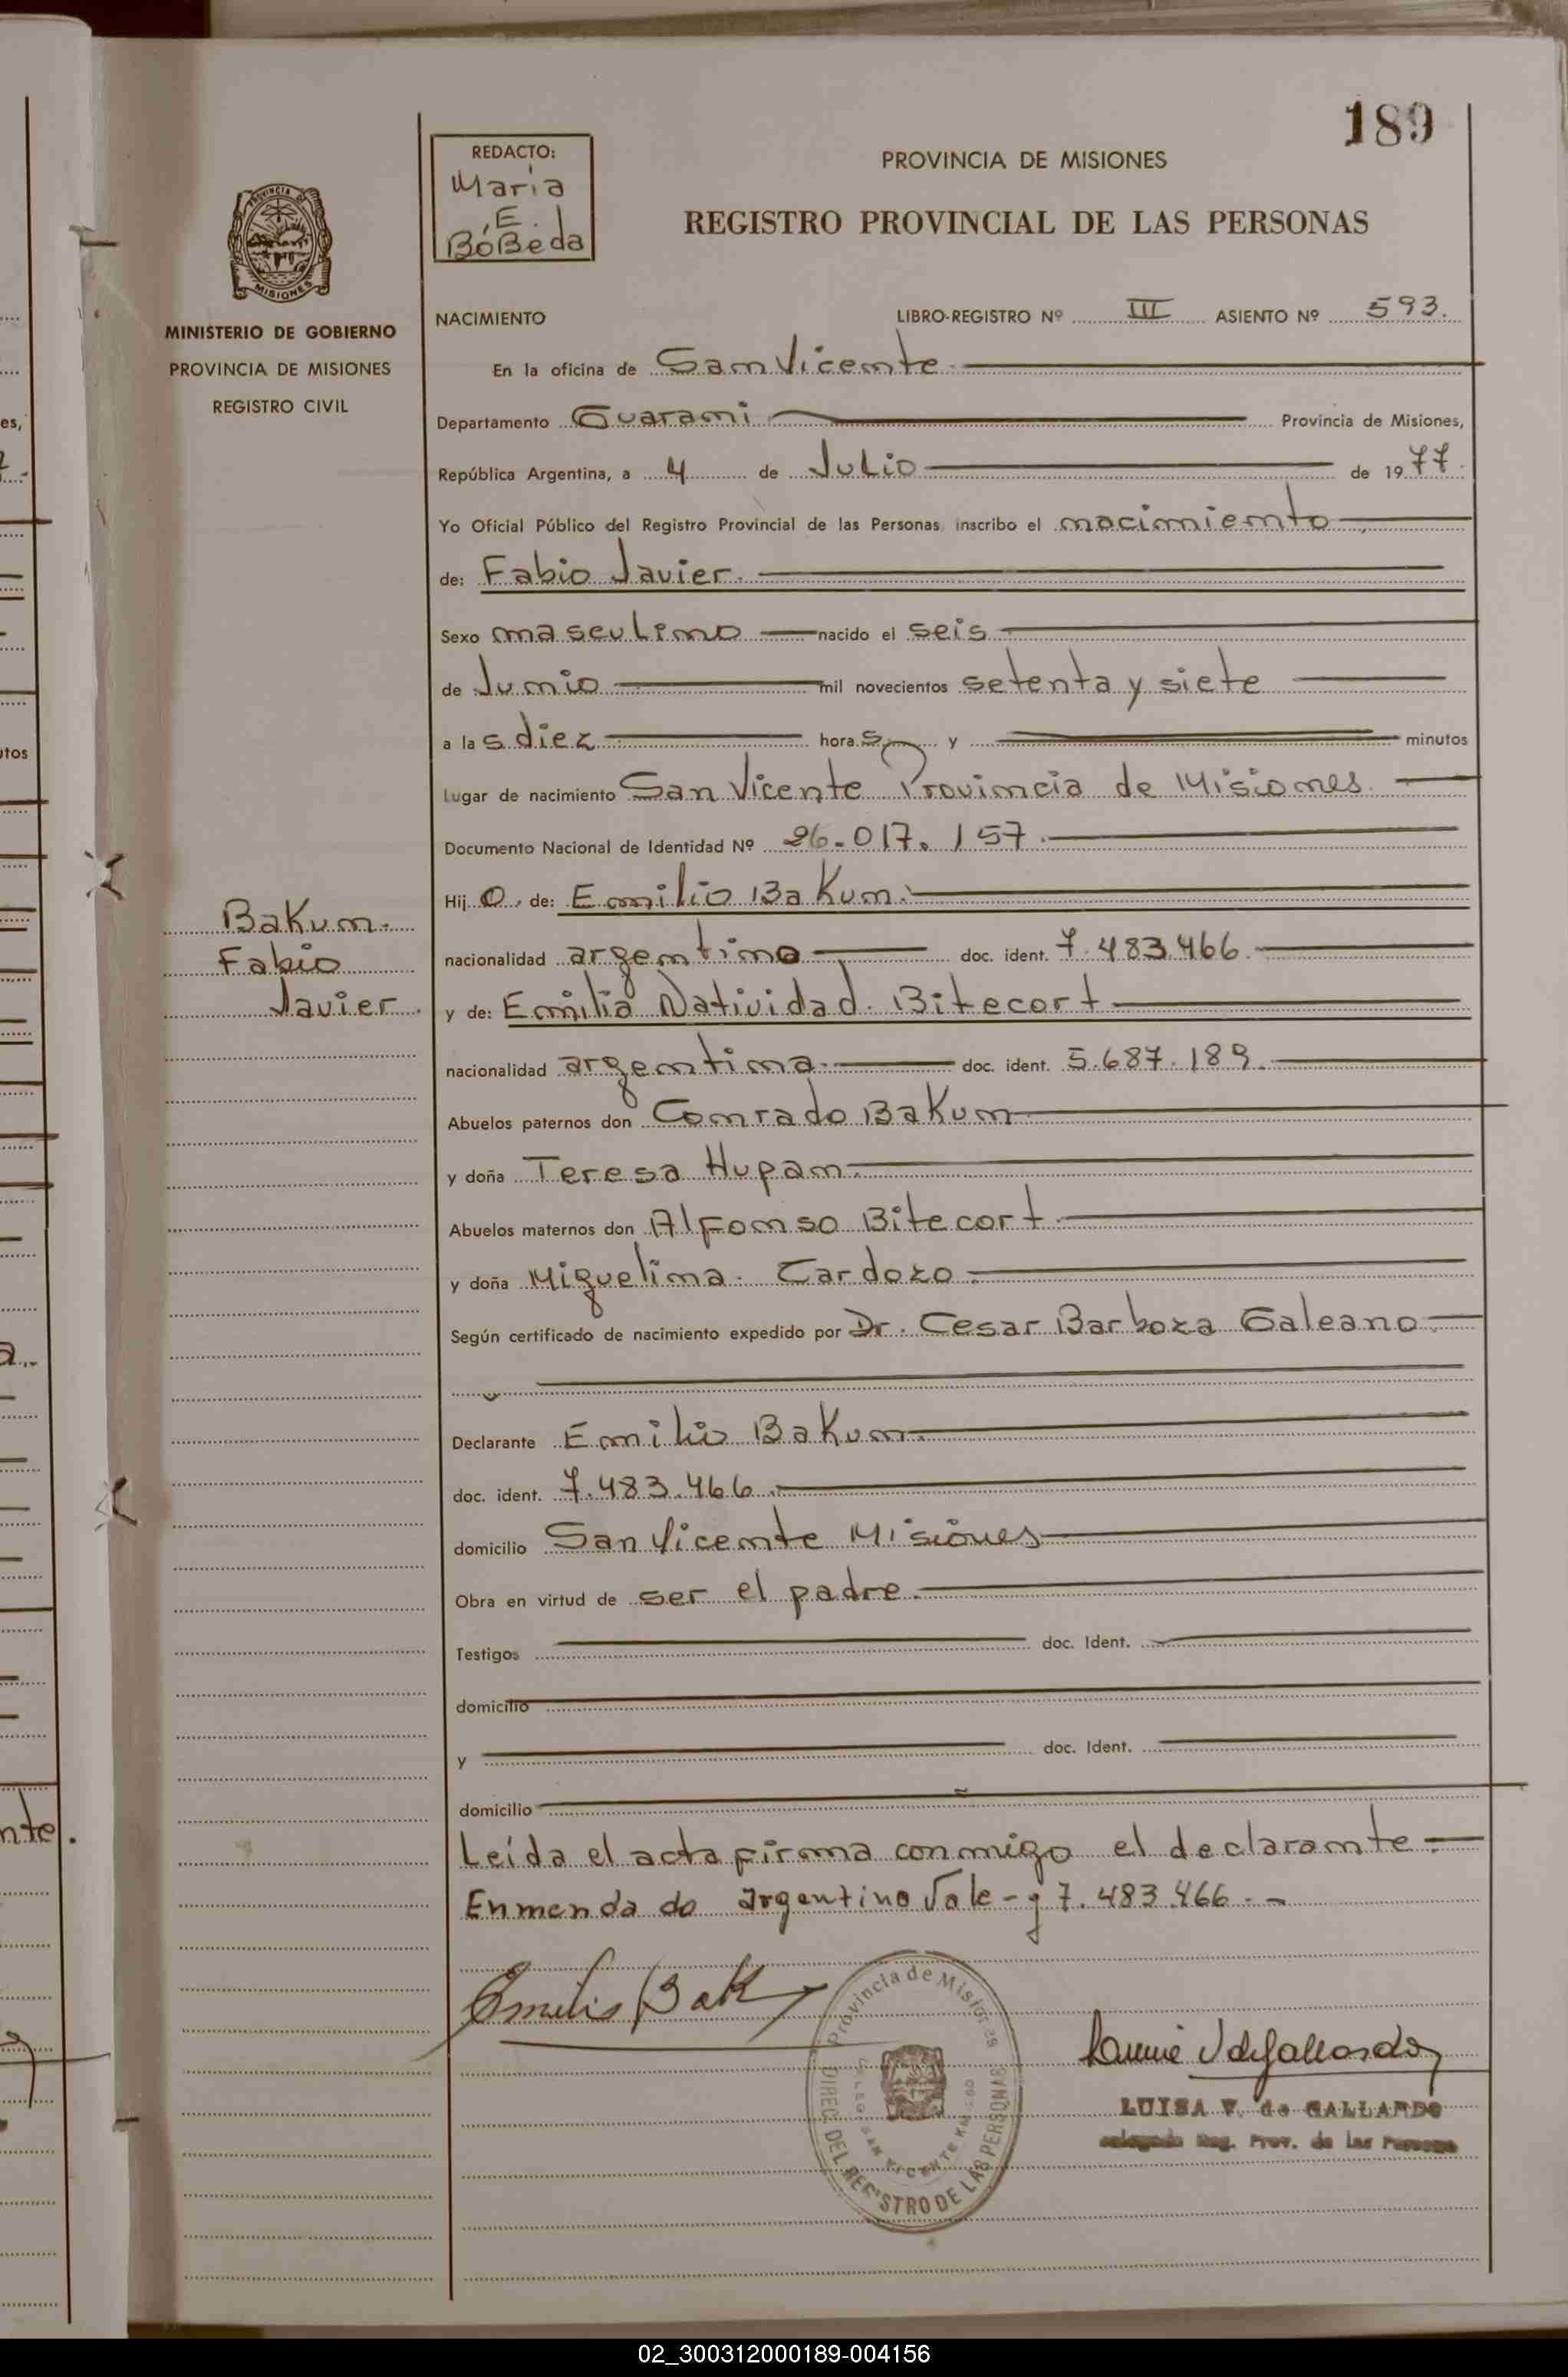 189
REDACTO:
Maria
E.
BóBeda
PROVINCIA DE MISIONES
REGISTRO PROVINCIAL DE LAS PERSONAS
PROVINCIA DE
MISIONES
MINISTERIO DE GOBIERNO
PROVINCIA DE MISIONES
REGISTRO CIVIL
NACIMIENTO LIBRO-REGISTRO Nº III ASIENTO Nº 593.
En la oficina de San Vicente
Departamento Guarani Provincia de Misiones,
República Argentina, a 4 de Julio de 1977.
Yo Oficial Público del Registro Provincial de las Personas inscribo el nacimiento
de: Fabio Javier.
Sexo masculino nacido el seis
de Junio mil novecientos setenta y siete
a las diez horas y minutos
Lugar de nacimiento San Vicente Provincia de Misiones.
Documento Nacional de Identidad Nº 26.017.157.
Hijo. de: Emilio Bakun.
Bakun.
Fabio
Javier.
nacionalidad argentino doc. ident. 7.483.466.
y de: Emilia Natividad. Bitecort
nacionalidad argentina. doc. ident. 5.687.189.
Abuelos paternos don Conrado Bakun
y doña Teresa Hupan.
Abuelos maternos don Alfonso Bitecort.
y doña Miguelina. Cardozo.
Según certificado de nacimiento expedido por Dr. Cesar Barboza Galeano.
Declarante Emilio Bakun.
doc. ident. 7.483.466.
domicilio San Vicente Misiones
Obra en virtud de ser el padre.
Testigos doc. Ident.
domicilio
y doc. Ident.
domicilio
Leída el acta firma conmigo el declarante.
Enmendado argentino Vale - y 7.483.466. -
Emilio Bak
Provincia de Misiones
DIREC. DEL REGISTRO DE LAS PERSONAS
SAN VICENTE
LUISA V. de GALLARDO
Reg. Prov. de las Personas
es,
utos
a.
nte.
02_300312000189-004156